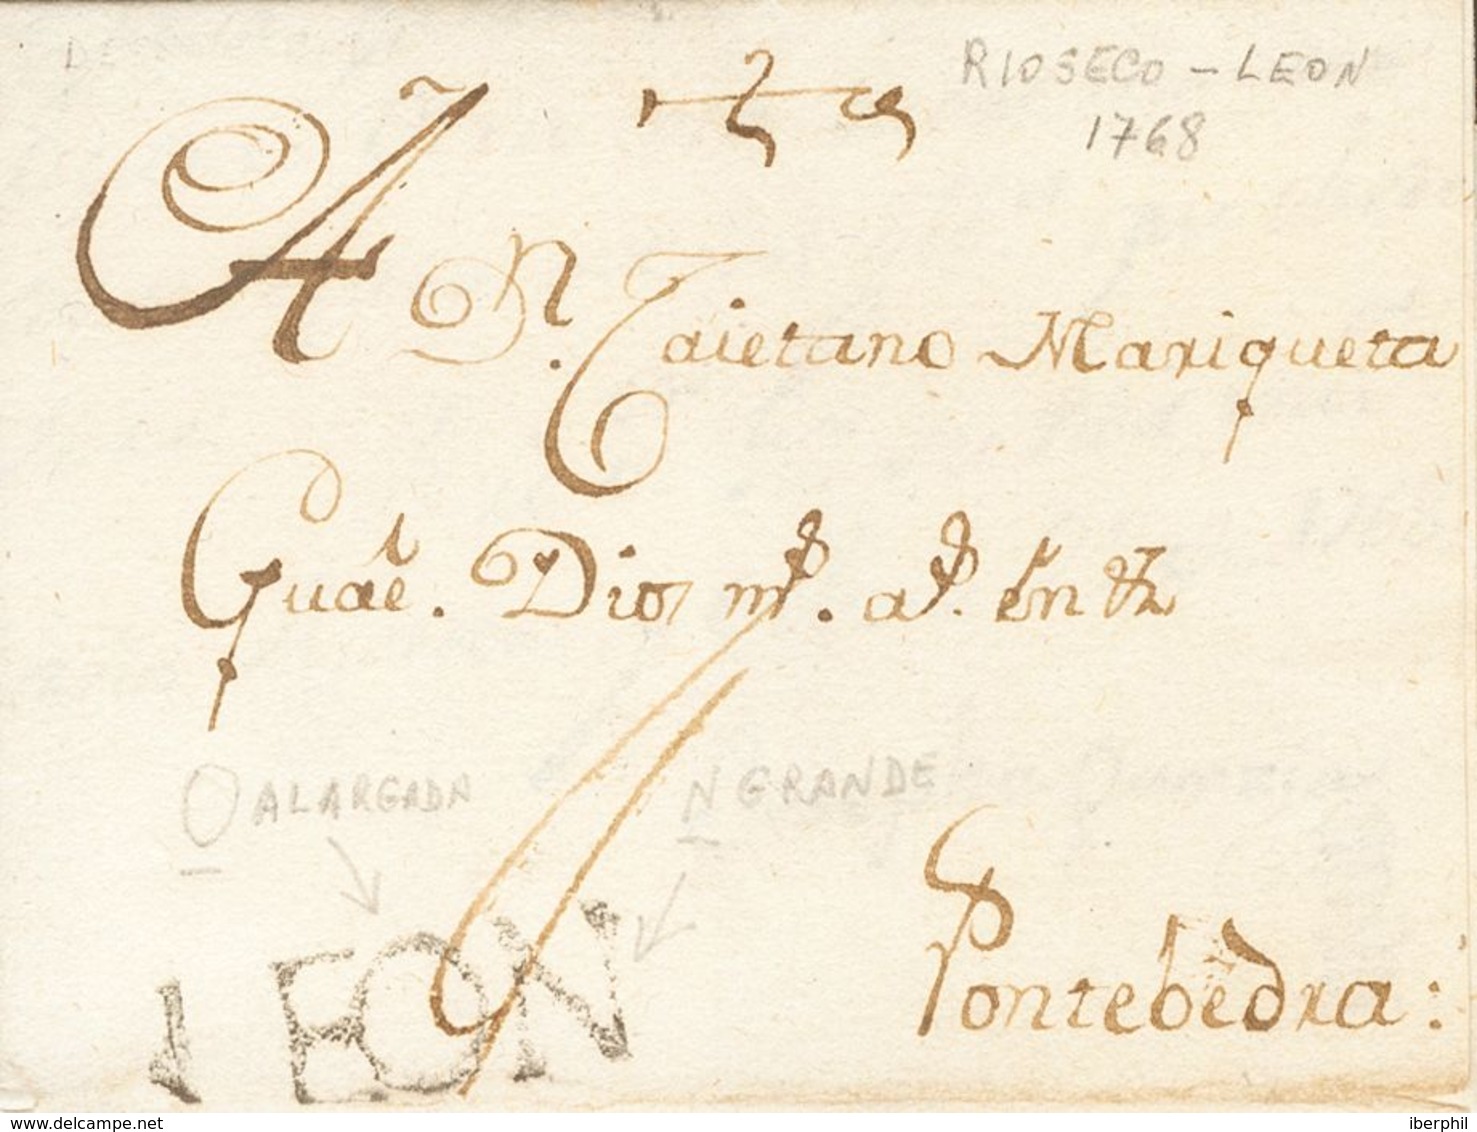 RIOSECO - LEON
1768
A Dn. Caietano Mariqueta
Guāe. Dios ms. as. en
O ALARGADA
N GRANDE
Pontebedra:
LEON
www.delcampe.net
iberphil